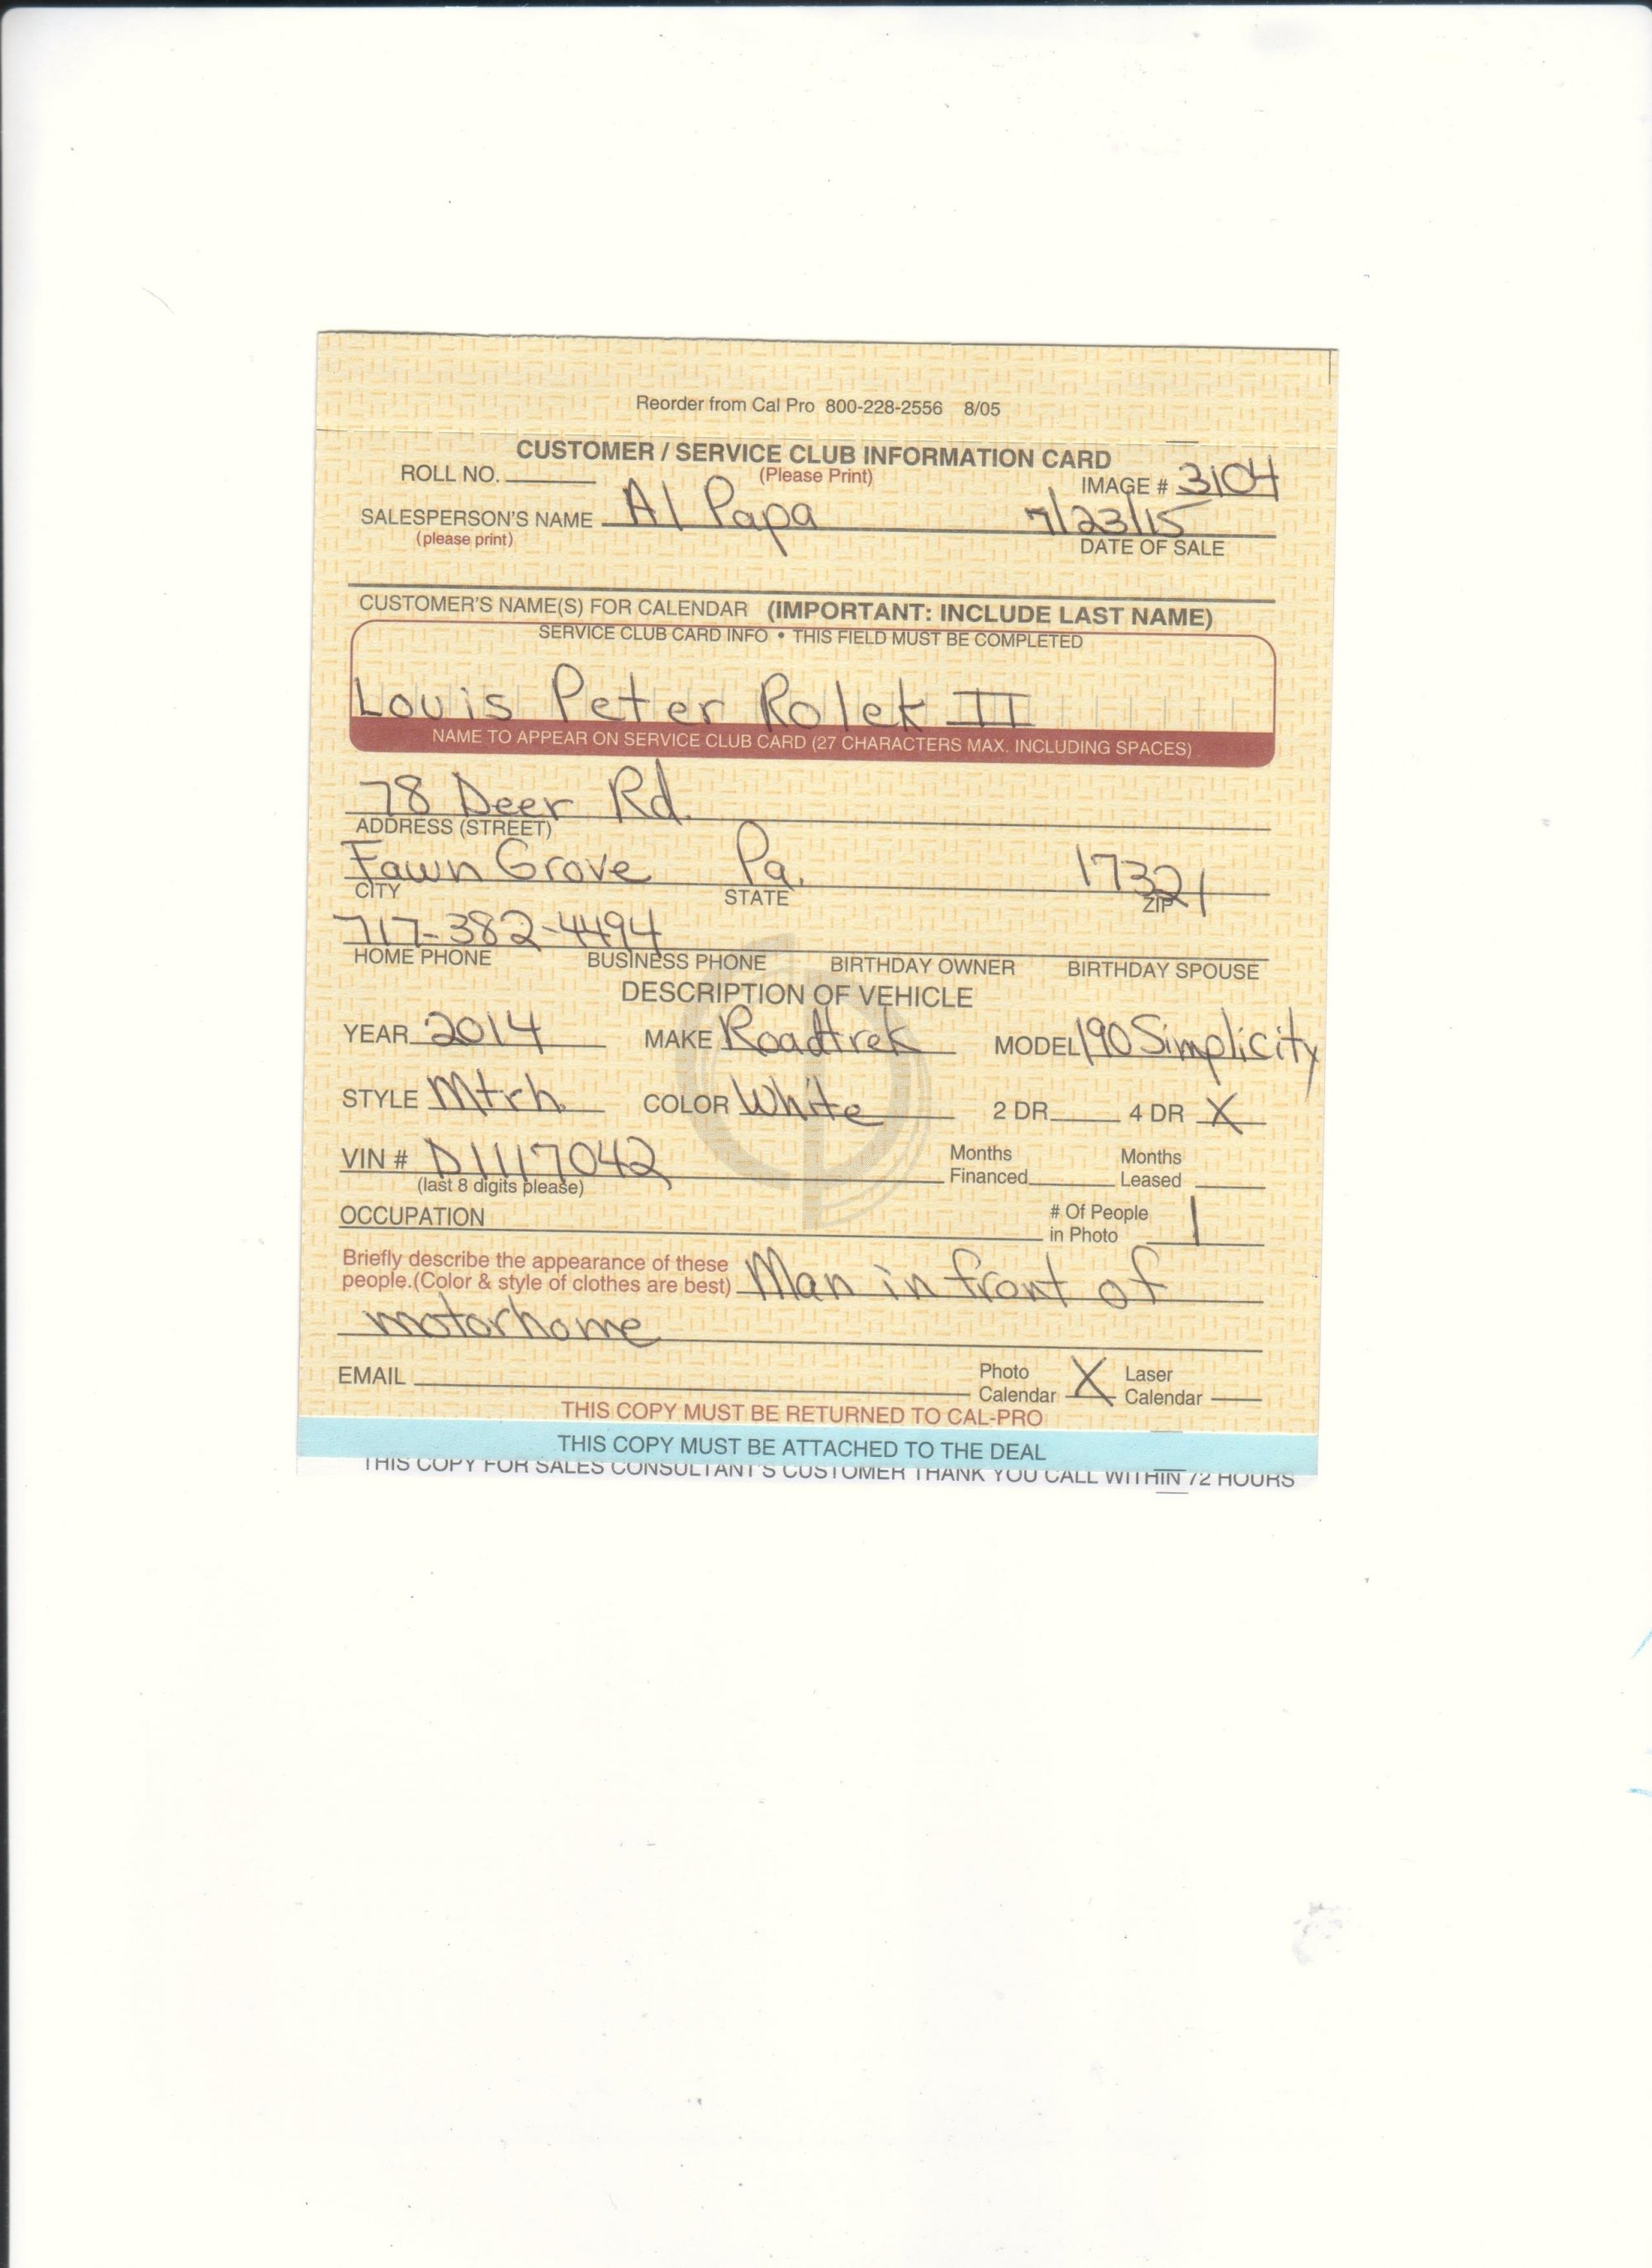 Reorder from Cal Pro 800-228-2556 8/05
CUSTOMER / SERVICE CLUB INFORMATION CARD
ROLL NO. (Please Print) IMAGE # 3104
SALESPERSON'S NAME Al Papa 7/23/15
(please print) DATE OF SALE
CUSTOMER'S NAME(S) FOR CALENDAR (IMPORTANT: INCLUDE LAST NAME)
SERVICE CLUB CARD INFO • THIS FIELD MUST BE COMPLETED
Louis Peter Rolek II
NAME TO APPEAR ON SERVICE CLUB CARD (27 CHARACTERS MAX. INCLUDING SPACES)
78 Deer Rd.
ADDRESS (STREET)
Fawn Grove Pa. 17321
CITY STATE ZIP
717-382-4494
HOME PHONE BUSINESS PHONE BIRTHDAY OWNER BIRTHDAY SPOUSE
DESCRIPTION OF VEHICLE
YEAR 2014 MAKE Roadtrek MODEL 190 Simplicity
STYLE Mtrh. COLOR White 2 DR 4 DR X
VIN # D1117042 Months Financed Months Leased
(last 8 digits please)
OCCUPATION # Of People in Photo 1
Briefly describe the appearance of these
people.(Color & style of clothes are best) Man in front of
motorhome
EMAIL Photo Calendar X Laser Calendar
THIS COPY MUST BE RETURNED TO CAL-PRO
THIS COPY MUST BE ATTACHED TO THE DEAL
THIS COPY FOR SALES CONSULTANT'S CUSTOMER THANK YOU CALL WITHIN 72 HOURS